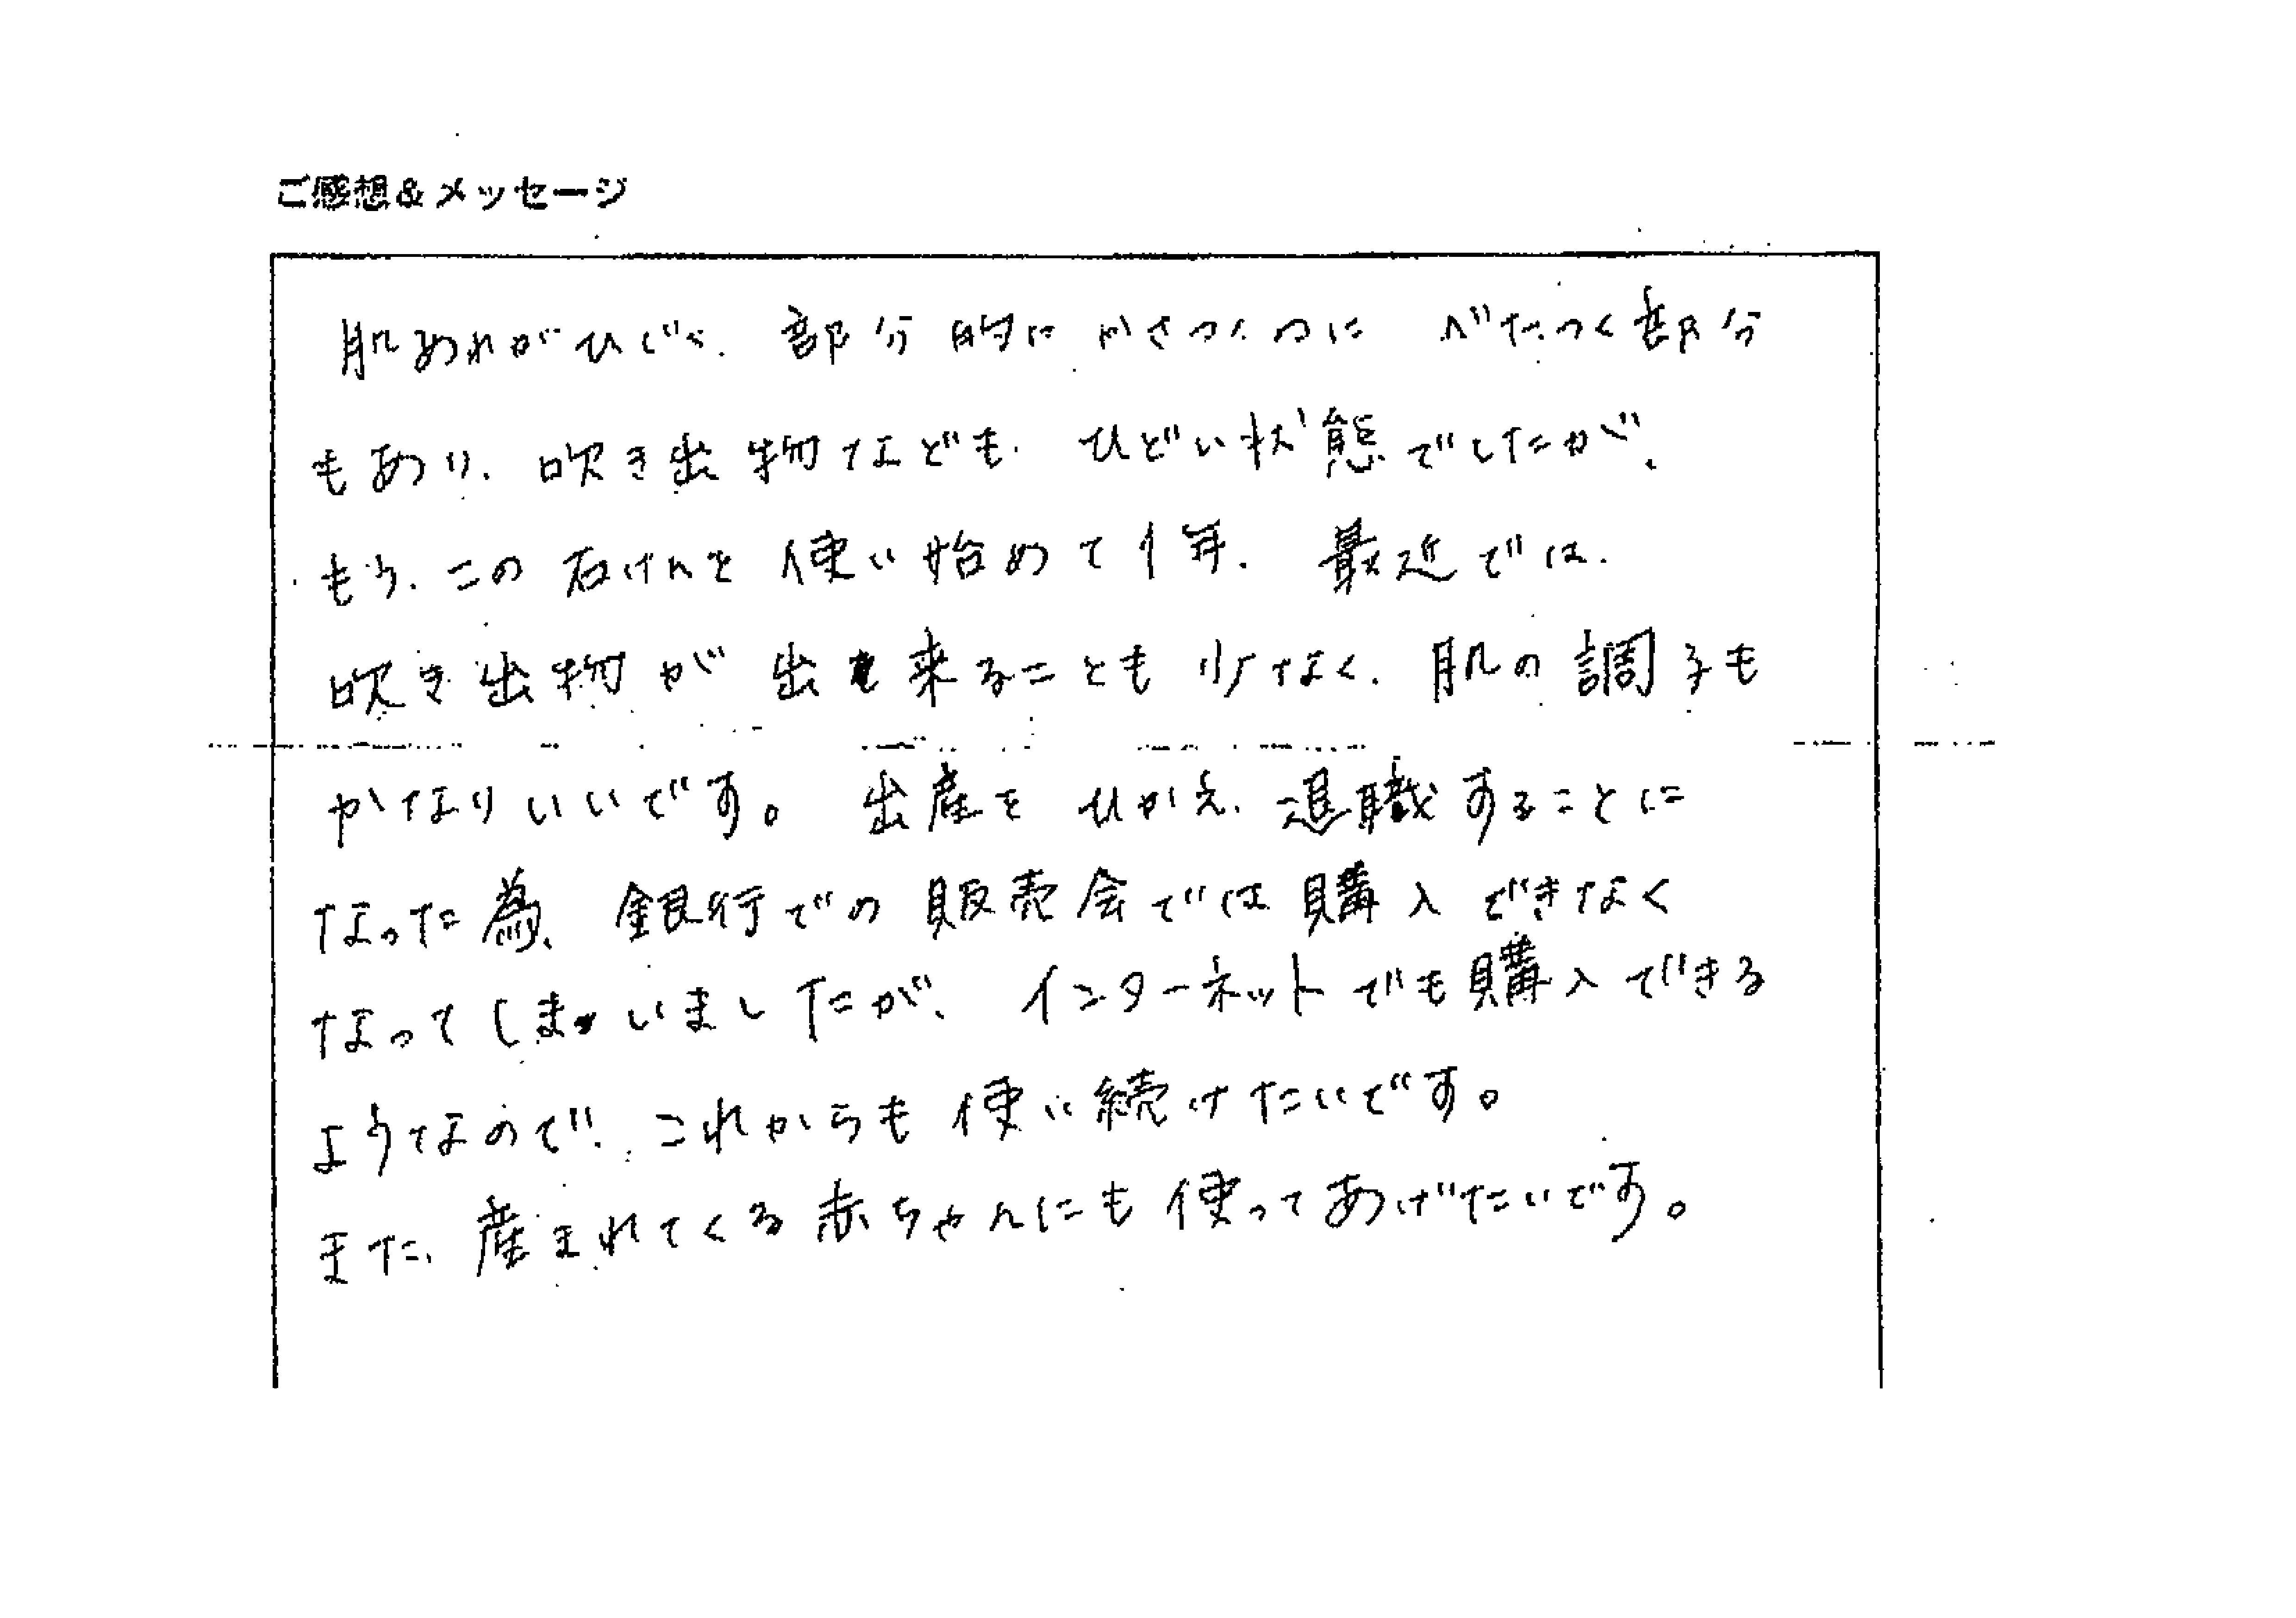 ご感想&メッセージ
肌あれがひどく、部分的にかさつくのに べたつく部分
もあり、吹き出物なども、ひどい状態でしたが、
もう、この石けんを使い始めて1年、最近では、
吹き出物が出来ることも少なく、肌の調子も
かなりいいです。 出産をひかえ、退職することに
なった為、銀行での販売会では購入できなく
なってしまいましたが、インターネットでも購入できる
ようなので、これからも使い続けたいです。
また、産まれてくる赤ちゃんにも使ってあげたいです。